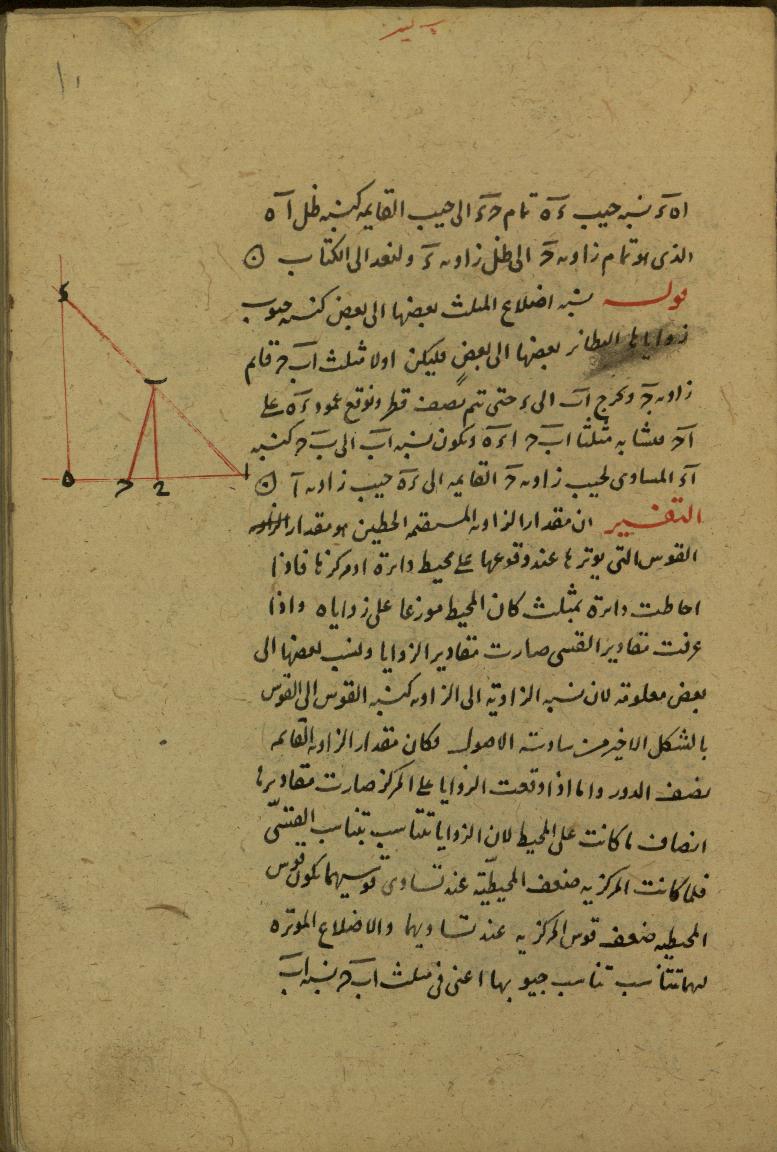 اه ء نسبة جيب ء ه تمام ح ء الى جيب القايمة كنسبة ظل ا ه
الذى هو تمام زاوية ح الى ظل زاوية ء ولنعد الى الكتاب
قوله نسبة اضلاع المثلث بعضها الى بعض كنسبة جيوب
زواياها النظائر بعضها الى بعض فليكن اولا مثلث اب ح قايم
زاوية ح ونخرج اب الى ء حتى تتم نصف قطر ونوقع عمود ء ه على
اح فتشابه مثلثا اب ح اء ه وتكون نسبة اب الى ب ح كنسبة
اء المساوى لجيب زاوية ح القايمة الى ء ه جيب زاوية ا
التفسير ان مقدار الزاوية المستقيمة الخطين هو مقدار
القوس التى يوترها عند وقوعها على محيط دايرة او مركزها فاذا
احاطت دايرة بمثلث كان المحيط موزعا على زواياه واذا
عرفت مقادير القسى صارت مقادير الزوايا ونسب بعضها الى
بعض معلومة لان نسبة الزاوية الى الزاوية كنسبة القوس الى القوس
بالشكل الاخير من سادسة الاصول فكان مقدار الزاوية القائمة
نصف الدور واما اذا وقعت الزوايا على المركز صارت مقاديرها
انصاف ما كانت على المحيط لان الزوايا تتناسب بتناسب القسىّ
فلما كانت المركزية ضعف المحيطيّة عند تساوى قوسيهما يكون قوس
المحيطية ضعف قوس المركزية عند تساويهما والاضلاع الموترة
لهما تتناسب تناسب جيوبها اعنى فى مثلث اب ح نسبة اب
ء
ب
ه
ح
ا